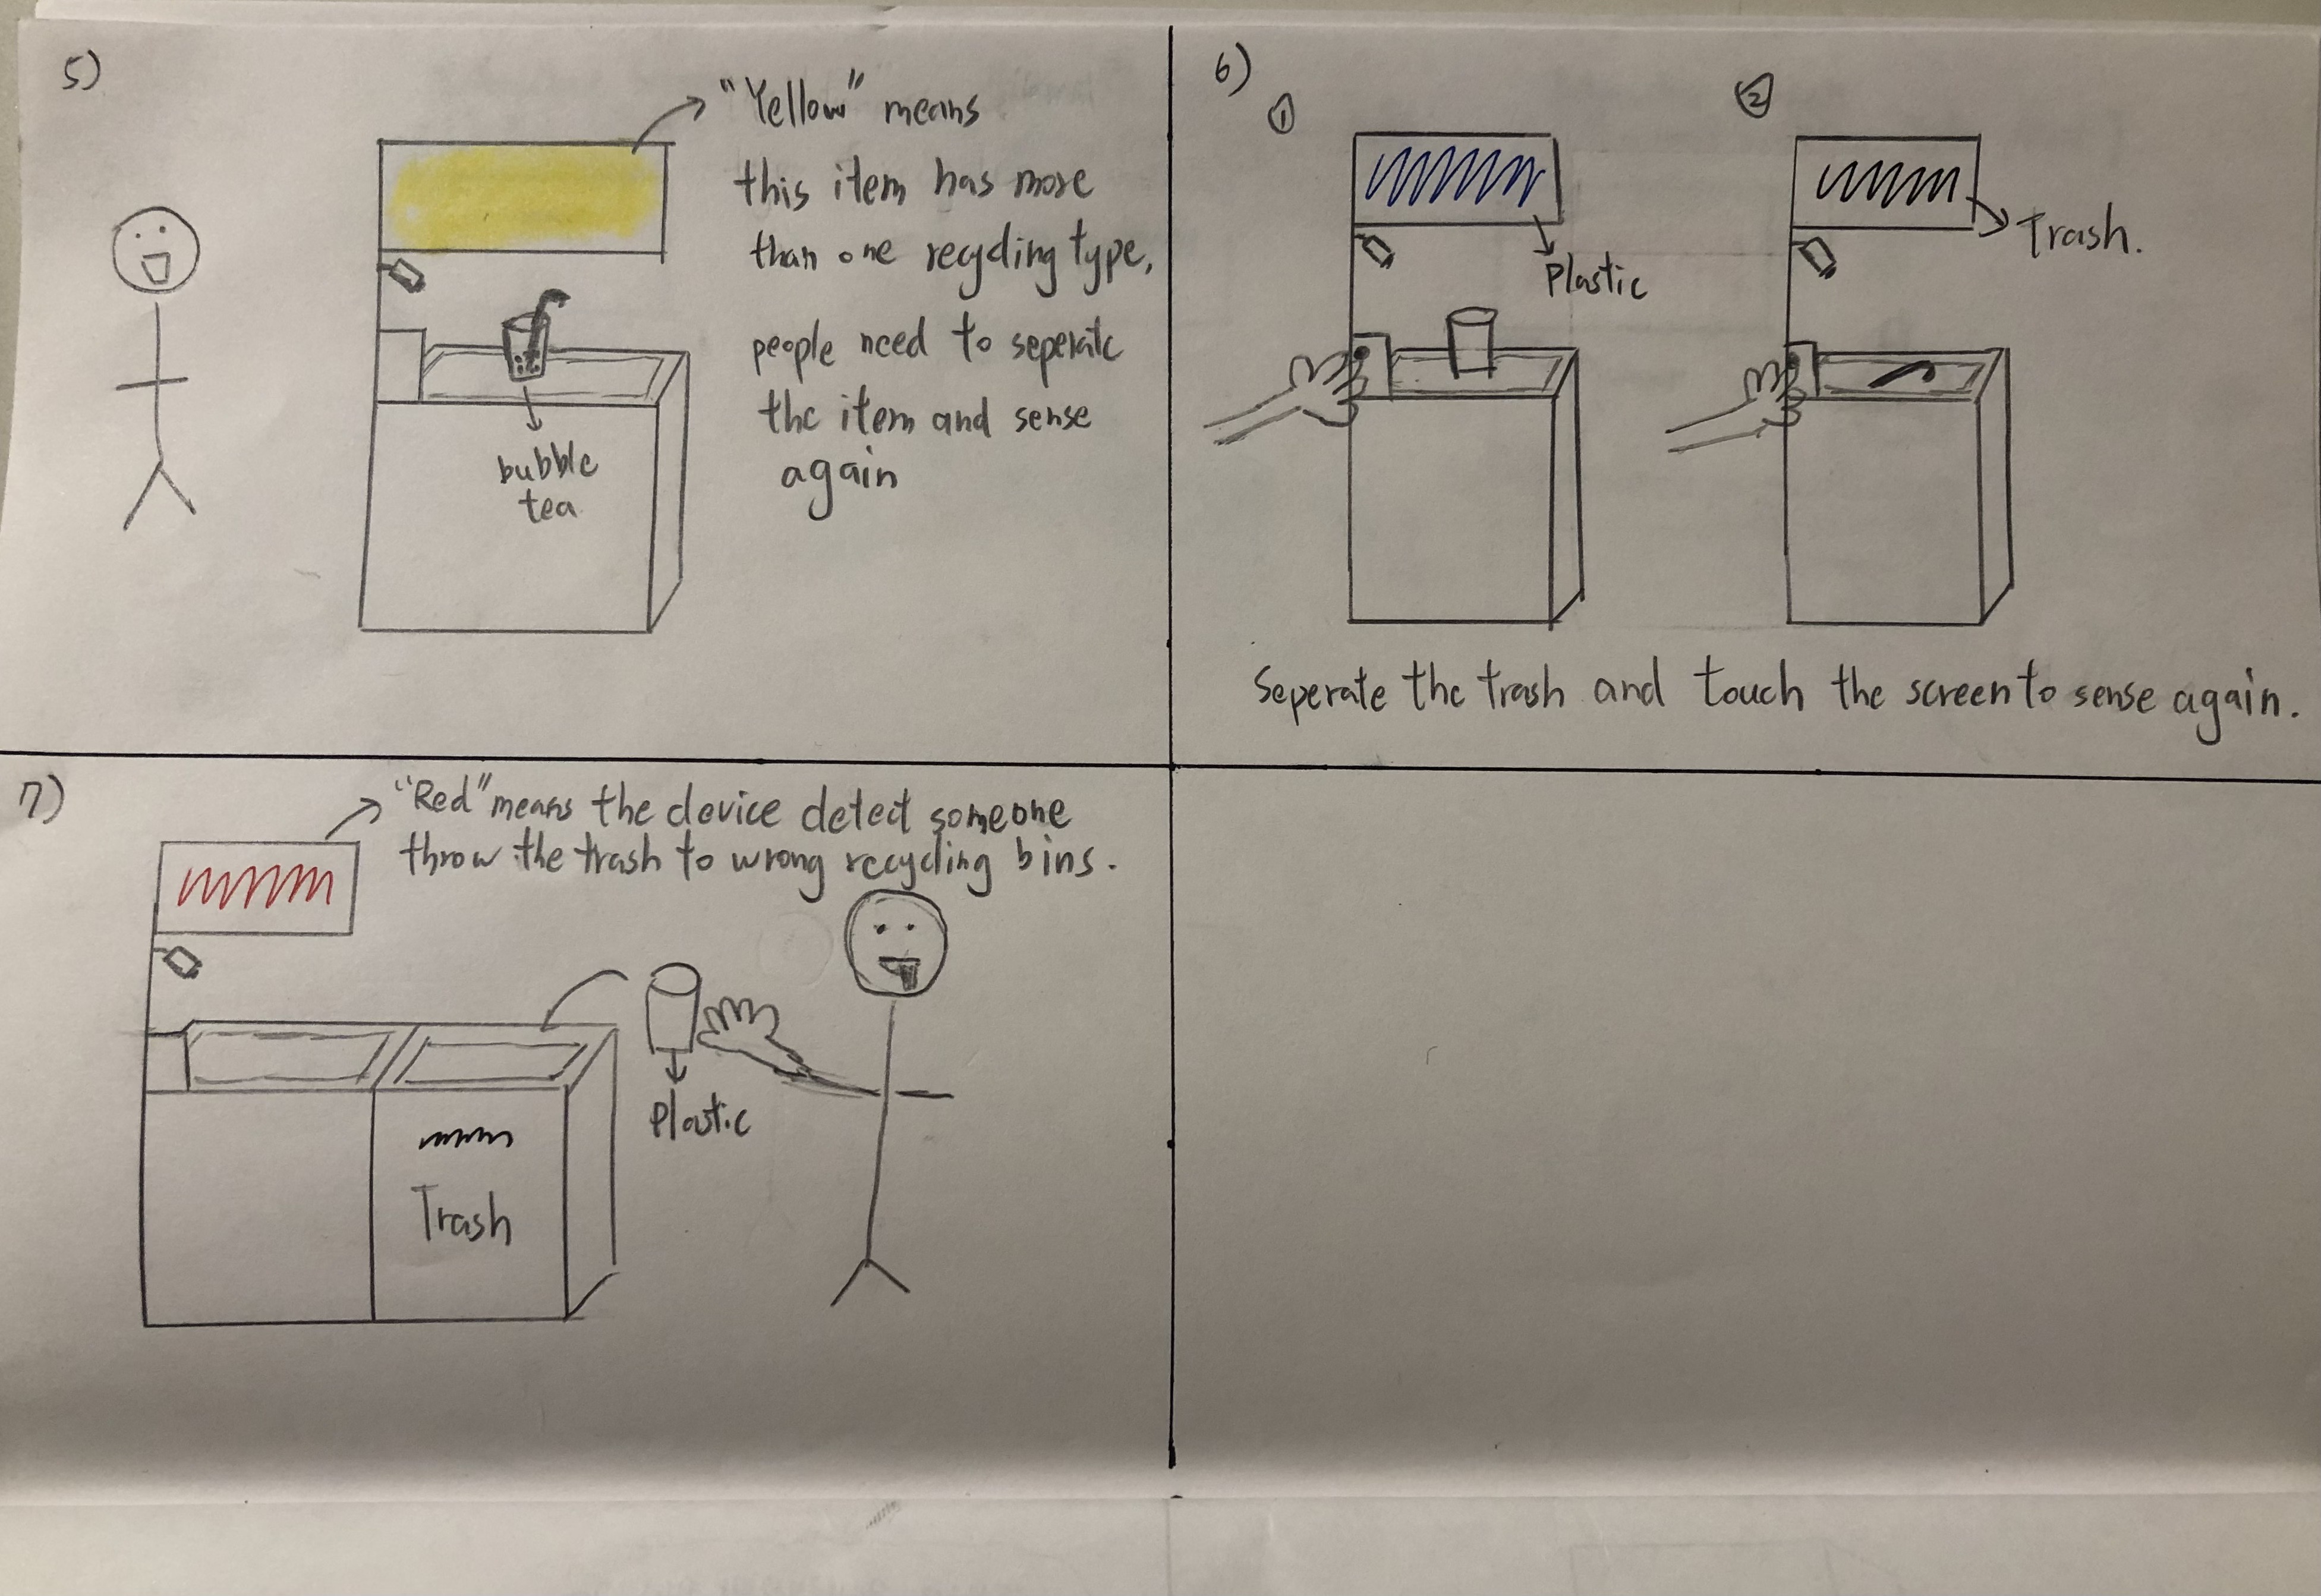 5)
"Yellow" means
this item has more
than one recycling type,
people need to seperate
the item and sense
again
bubble
tea
6)
①
②
Plastic
Trash.
Seperate the trash and touch the screen to sense again.
7)
"Red" means the device detect someone
throw the trash to wrong recycling bins.
Plastic
Trash